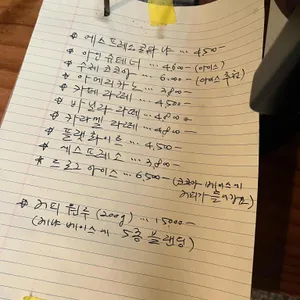 * 에스프레소로마노 ... 4,500-
* 아인슈페너 ... 4,800- (아이스)
* 수제 초코라떼 ... 6,000- (아이스 추천)
* 아메리카노 ... 3,800-
* 카페 라떼 ... 4,500-
* 바닐라 라떼 ... 4,800-
* 카라멜 라떼 ... 4,800-
* 플랫화이트 ... 4,500-
* 에스프레소 ... 3,800-
* 드로그 아이스 ... 6,500- (초코아이스에
커피가 들어감요)
* 커피 원두 (200g) ... 15000-
(케냐 베이스에 5종 블렌딩)